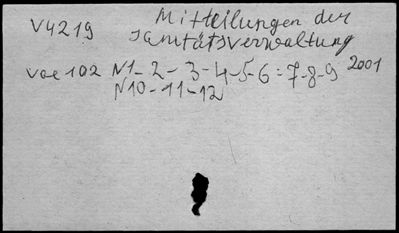 V4219 Mitteilungen der
Sanitätsverwaltung
Vol 102 N1-2-3-4-5-6=7-8-9 2001
N10-11-12